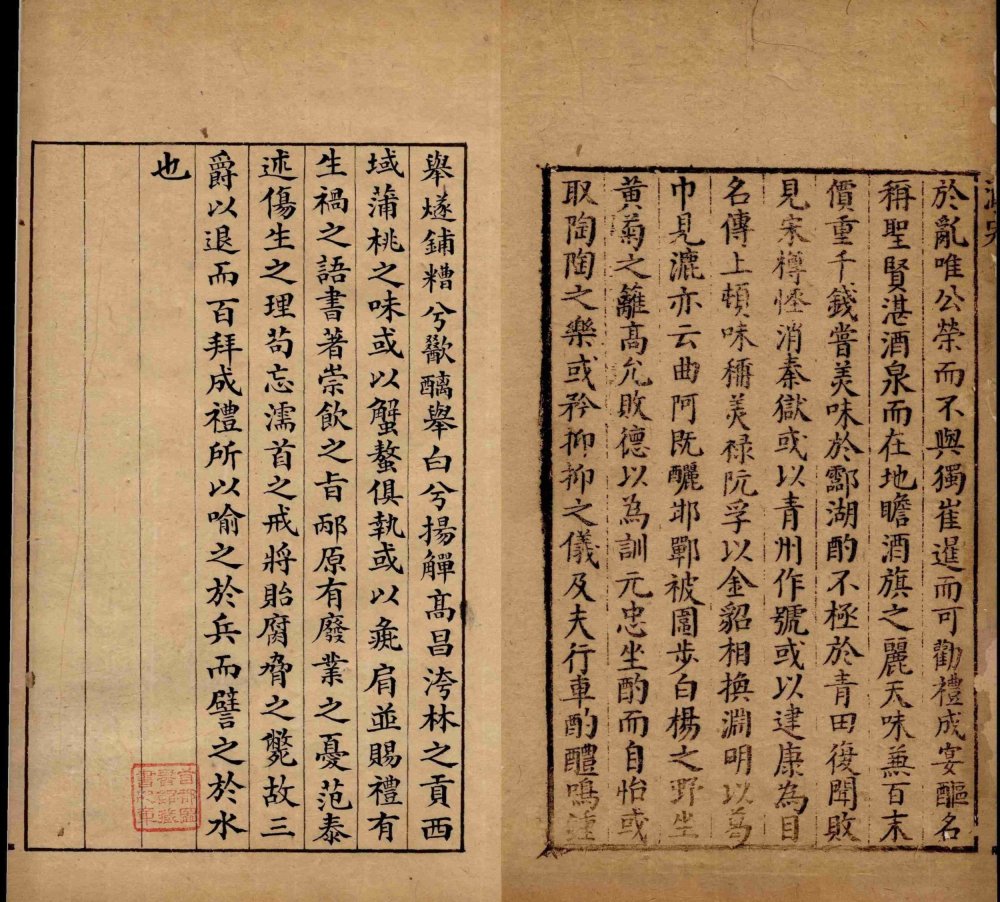 酒史
於亂唯公榮而不與獨崔暹而可勸禮成宴醧名
稱聖賢湛酒泉而在地瞻酒旗之麗天味蕪百末
價重千錢嘗美味於酃湖酌不極於青田復聞敗
見宋樽怪消秦獄或以青州作號或以建康為目
名傳上頓味稱美祿阮孚以金貂相換淵明以葛
巾見漉亦云曲阿既釃邯鄲被圍步白楊之野坐
黃菊之籬高允敗德以為訓元忠坐酌而自怡或
取陶陶之樂或矜抑抑之儀及夫行車酌醴鳴鍾
舉燧餔糟兮歠醨舉白兮揚觶高昌誇林之貢西
域蒲桃之味或以蟹螯俱執或以彘肩並賜禮有
生禍之語書著崇飲之旨邴原有廢業之憂范泰
述傷生之理苟忘濡首之戒將貽腐脅之斃故三
爵以退而百拜成禮所以喻之於兵而譬之於水
也